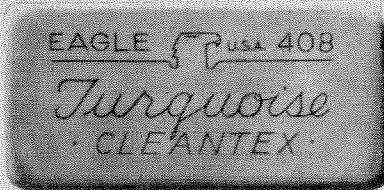 EAGLE USA 408
Turquoise
· CLEANTEX ·